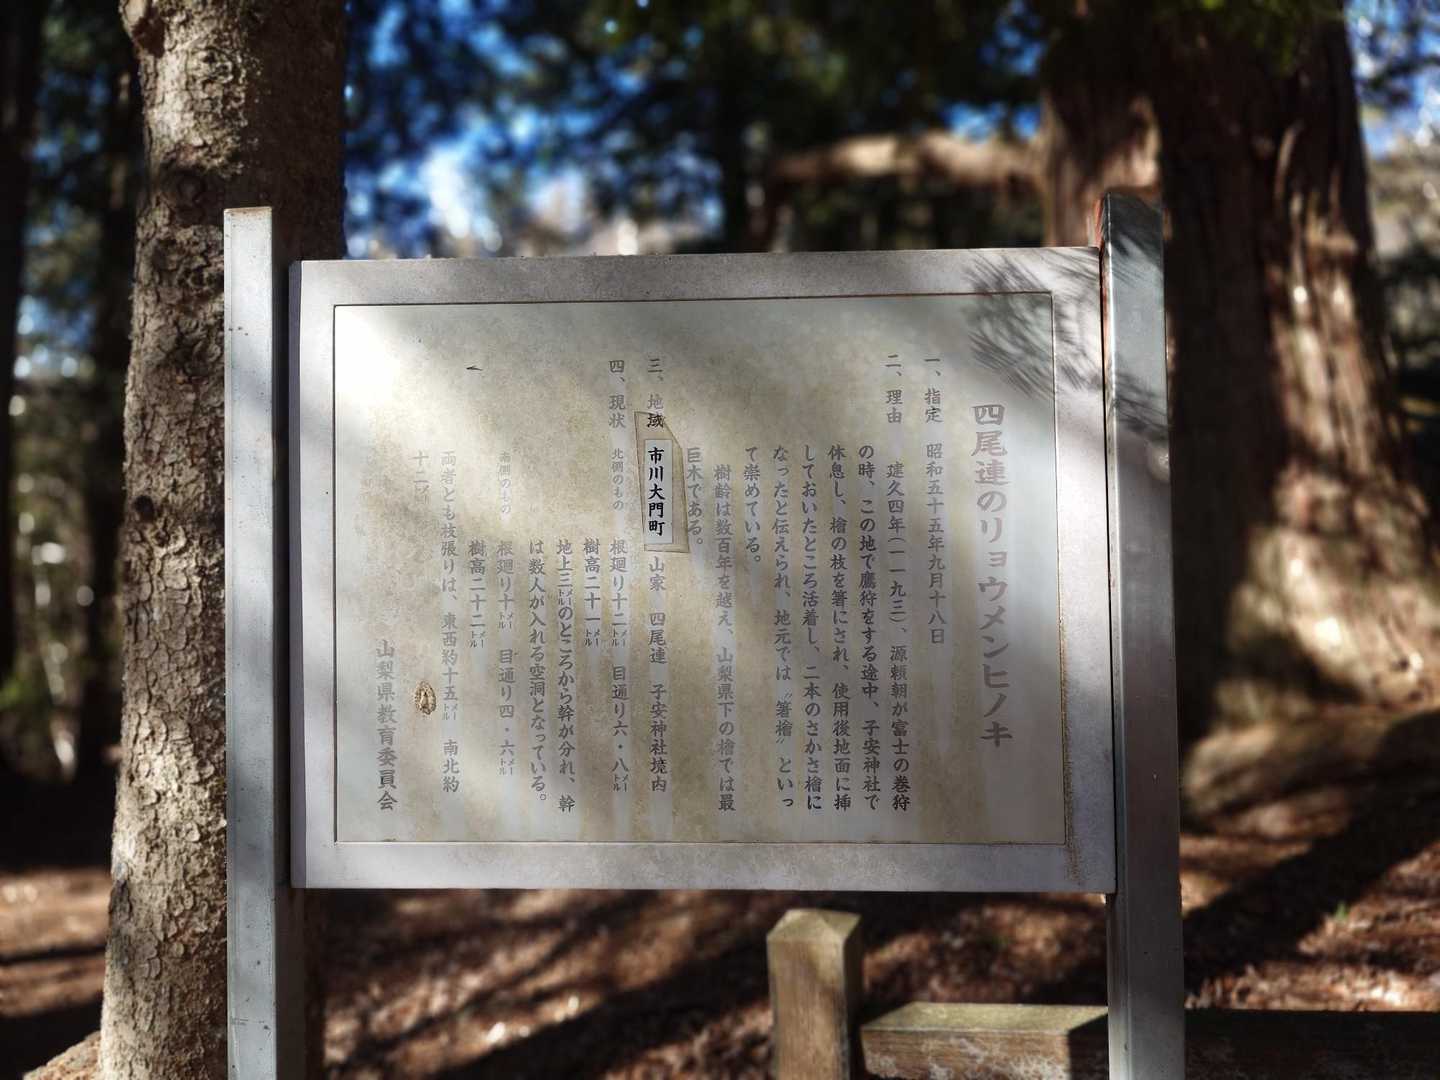 四尾連のリョウメンヒノキ
一、指定　昭和五十五年九月十八日
二、理由　建久四年(一一九三)、源頼朝が富士の巻狩
の時、この地で鷹狩をする途中、子安神社で
休息し、檜の枝を箸にされ、使用後地面に挿
しておいたところ活着し、二本のさかさ檜に
なったと伝えられ、地元では〝箸檜〟といっ
て崇めている。
樹齢は数百年を越え、山梨県下の檜では最
巨木である。
三、地域　市川大門町　山家　四尾連　子安神社境内
四、現状　北側のもの　根廻り十二メートル　目通り六・八メートル
樹高二十一メートル
地上三メートルのところから幹が分れ、幹
は数人が入れる空洞となっている。
南側のもの　根廻り十メートル　目通り四・六メートル
樹高二十二メートル
両者とも枝張りは、東西約十五メートル　南北約
十二メートル
山梨県教育委員会